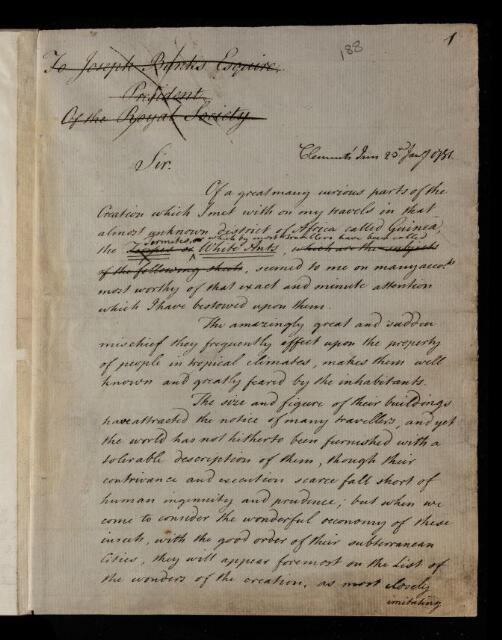 188
1
To Joseph Banks Esquire.
President
Of the Royal Society
Clements Inn 23d Jany 1781.
Sir.
Of a great many curious parts of the
Creation which I met with on my travels in that
almost unknown district of Africa called Guinea,
Termites, or which by most travellers have been called
the White Ants, which are the subjects
of the following sheets, seemed to me on many accots.
most worthy of that exact and minute attention
which I have bestowed upon them.
The amazingly great and sudden
mischief they frequently effect upon the property
of people in tropical climates, makes them well
known and greatly feared by the inhabitants.
The size and figure of their buildings
have attracted the notice of many travellers, and yet
the world has not hitherto been furnished with a
tolerable description of them, though their
contrivance and execution scarce fall short of
human ingenuity and prudence; but when we
come to consider the wonderful oeconomy of these
insects, with the good order of their subterranean
Cities, they will appear foremost on the List of
the wonders of the creation, as most closely
imitating